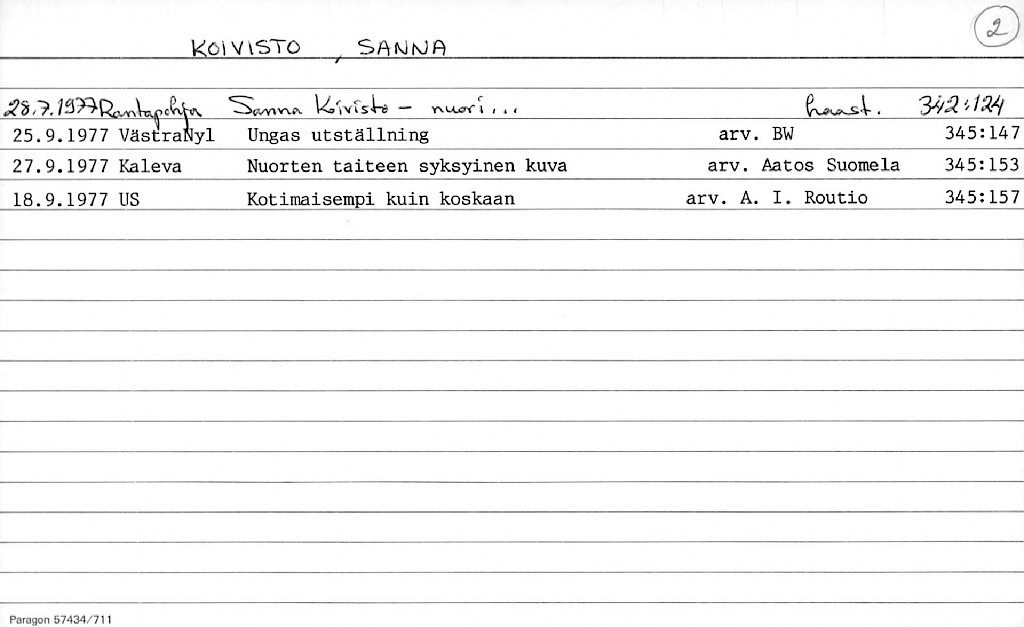 2
KOIVISTO , SANNA
28.7.1977 Rantapohja Sanna Koivisto - nuori... haast. 342:124
25.9.1977 VästraNyl Ungas utställning arv. BW 345:147
27.9.1977 Kaleva Nuorten taiteen syksyinen kuva arv. Aatos Suomela 345:153
18.9.1977 US Kotimaisempi kuin koskaan arv. A. I. Routio 345:157
Paragon 57434/711